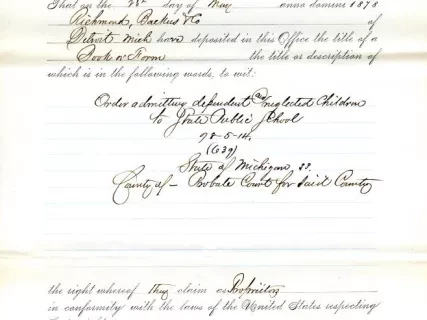 That on the 28th day of May anno domini 1878
Richmond, Backus & Co of
Detroit Mich have deposited in this Office the title of a
Book or Form the title or description of
which is in the following words, to wit:
Order admitting dependent and neglected Children
to State Public School
78-5-14.
(639)
State of Michigan ss.
County of — Probate Court for Said County
the right whereof they claim as Proprietors
in conformity with the laws of the United States respecting